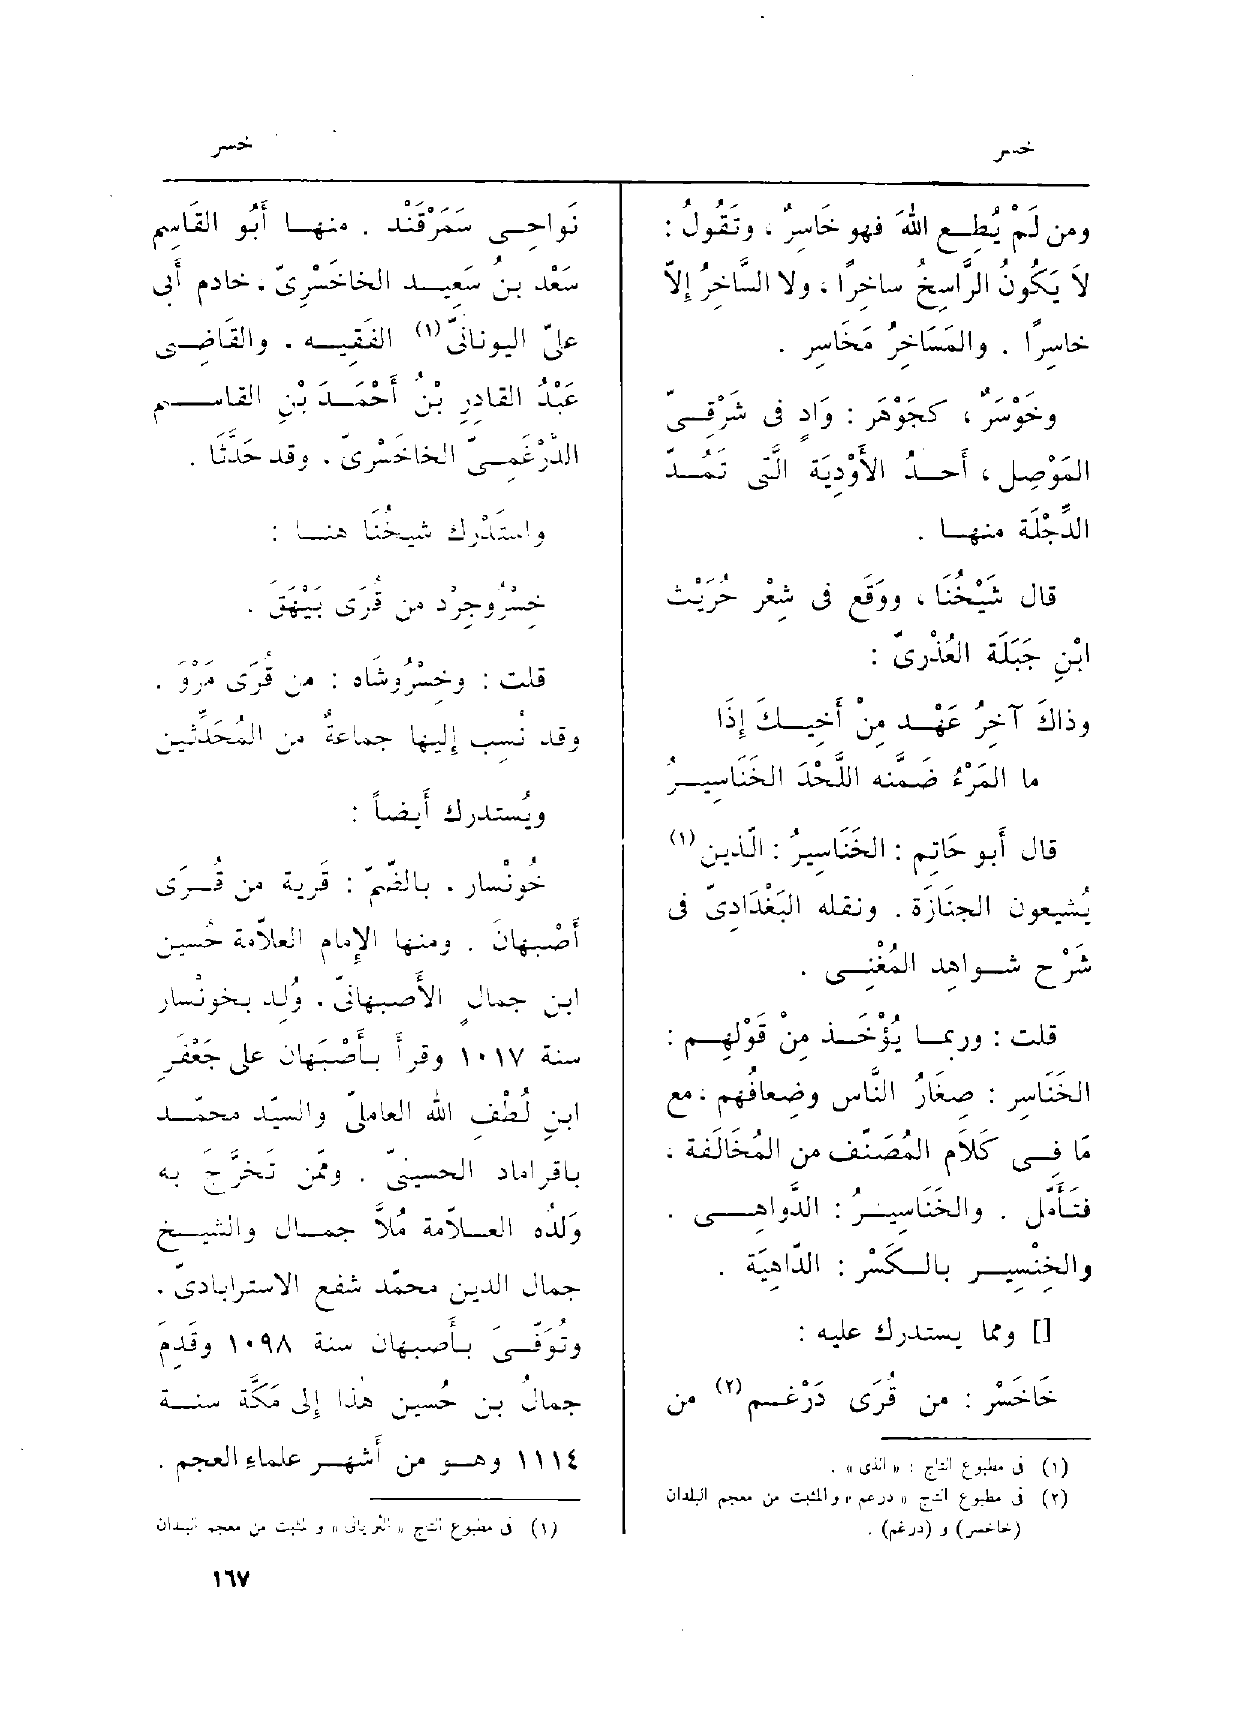 خسر
خسر
ومن لَمْ يُطِع اللهَ فهو خَاسِرٌ ، وتَقُولُ :
لاَ يَكُونُ الرَّاسِخُ ساخِرًا ، ولا السَّاخِرُ إلاّ
خاسِرًا . والمَسَاخِرُ مَخَاسِر .
وخَوْسَرٌ ، كجَوْهَر : وَادٍ فى شَرْقِىّ
المَوْصِل ، أَحدُ الأَوْدِيَة الَّتى تَمُدّ
الدِّجْلَة منها .
قال شَيْخُنَا ، ووَقَع فى شِعْر حُرَيْث
ابْنِ جَبَلَة العُذْرىّ :
وذاكَ آخِرُ عَهْد مِنْ أَخِيكَ إذَا
ما المَرْءُ ضَمَّنه اللَّحْدَ الخَنَاسِيرُ
قال أَبو حَاتِم : الخَنَاسِيرُ : الّذين (١)
يُشيعون الجنَازَة . ونقله البَغْدَادِىّ فى
شَرْح شواهد المُغْنِى .
قلت : وربما يُؤْخَذ مِنْ قَوْلهم :
الخَنَاسِر : صِغَارُ النَّاس وضِعافُهم ، مع
مَا فى كَلَام المُصَنّف من المُخَالَفة ،
فتَأَمَّل . والخَنَاسِيرُ : الدَّواهِى .
والخِنْسِير بالكَسْر : الدّاهِيَة .
[] ومما يستدرك عليه :
خَاخَسْر : من قُرَى دَرْغم (٢) من
(١) فى مطبوع التاج : « الذى » .
(٢) فى مطبوع التاج « درعم » والمثبت من معجم البلدان
(خاخسر) و (درغم) .
نَواحِى سَمَرْقَنْد . منها أَبُو القَاسِم
سَعْد بنُ سَعِيد الخاخَسْرِىّ ، خادم أَبى
علىّ اليونانىّ (١) الفَقِيه . والقَاضِى
عَبْدُ القادِرِ بْنُ أَحْمَدَ بْنِ القاسِم
الدَّرْغَمِىّ الخاخَسْرِىّ . وقد حَدَّثَا .
واستَدْرك شيخُنَا هنا :
خِسْرُوجِرْد من قُرَى بَيْهَقَ .
قلت : وخِسْرُوشَاه : من قُرَى مَرْوَ .
وقد نُسِب إليها جماعةٌ من المُحَدِّثين
ويُستدرك أَيضاً :
خُونْسار . بالضّمّ : قرية من قُرَى
أَصْبِهانَ . ومنها الإمام العلاّمة حُسين
ابن جمال الأَصبهانىّ . وُلِد بخونْسار
سنة ١٠١٧ وقرأَ بأَصْبَهان على جَعْفَرِ
ابنِ لُطْفِ الله العاملىّ والسيّد محمّد
باقر اماد الحسينىّ . وممّن تَخرَّجَ به
وَلَدُه العلاّمة مُلاَّ جمال والشيخ
جمال الدين محمّد شفع الاسترابادىّ .
وتُوَفِّىَ بأَصبهان سنة ١٠٩٨ وقَدِم
جمالُ بن حُسين هٰذا إلى مَكَّة سنة
١١١٤ وهو من أَشهر علماءِ العجم .
(١) فى مطبوع التاج « الثريانى » و المثبت من معجم البلدان
١٦٧